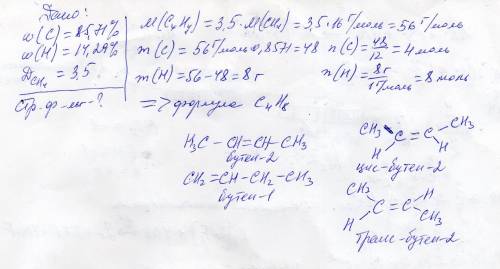 Дано:
ω(C) = 85,71%
ω(H) = 14,29%
D CH₄ = 3,5
Стр. ф-лы - ?
M(CxHy) = 3,5 · M(CH₄) = 3,5 · 16 г/моль = 56 г/моль
m(C) = 56 г/моль · 0,8571 = 48 n(C) = 48/12 = 4 моль
m(H) = 56 - 48 = 8 г n(H) = 8г/1г/моль = 8 моль
=> формула C₄H₈
H₃C - CH = CH - CH₃
бутен-2
CH₂ = CH - CH₂ - CH₃
бутен-1
CH₃ CH₃
C = C
H H
цис-бутен-2
CH₃ H
C = C
H CH₃
транс-бутен-2